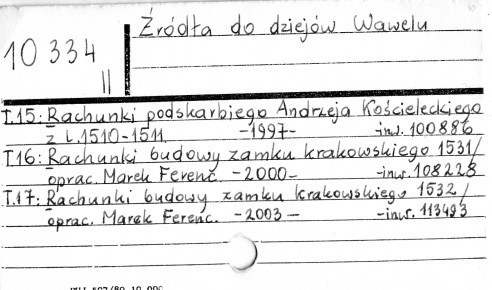 Źródła do dziejów Wawelu
10 334
II
T.15: Rachunki podskarbiego Andrzeja Kościeleckiego
z l. 1510-1511 -1997- -inw. 100886
T.16: Rachunki budowy zamku krakowskiego 1531/
oprac. Marek Ferenc. -2000- -inw. 108228
T.17: Rachunki budowy zamku krakowskiego 1532/
oprac. Marek Ferenc. -2003- -inw. 113493